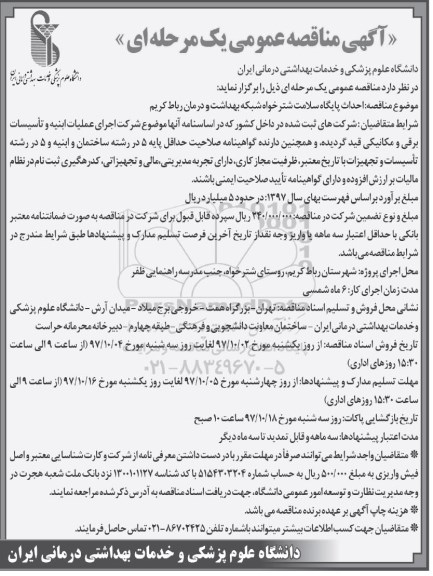 «آگهی مناقصه عمومی یک مرحله ای»
دانشگاه علوم پزشکی و خدمات بهداشتی درمانی ایران
دانشگاه علوم پزشکی و خدمات بهداشتی درمانی ایران
در نظر دارد مناقصه عمومی یک مرحله ای ذیل را برگزار نماید:
موضوع مناقصه: احداث پایگاه سلامت شترخواه شبکه بهداشت و درمان رباط کریم
شرایط متقاضیان: شرکت های ثبت شده در داخل کشور که در اساسنامه آنها موضوع شرکت اجرای عملیات ابنیه و تأسیسات
برقی و مکانیکی قید گردیده، و همچنین دارنده گواهینامه صلاحیت حداقل پایه ۵ در رشته ساختمان و ابنیه و ۵ در رشته
تأسیسات و تجهیزات با تاریخ معتبر، ظرفیت مجاز کاری، دارای تجربه مدیریتی، مالی و تجهیزاتی، کد رهگیری ثبت نام در نظام
مالیات بر ارزش افزوده و دارای گواهینامه تأیید صلاحیت ایمنی باشند.
مبلغ برآورد بر اساس فهرست بهای سال ۱۳۹۷: در حدود ۵ میلیارد ریال
مبلغ و نوع تضمین شرکت در مناقصه: ۳۴۰/۰۰۰/۰۰۰ ریال سپرده قابل قبول برای شرکت در مناقصه به صورت ضمانتنامه معتبر
بانکی با حداقل اعتبار سه ماهه یا واریز وجه نقد از تاریخ آخرین فرصت تسلیم مدارک و پیشنهادها طبق شرایط مندرج در
شرایط مناقصه می باشد.
محل اجرای پروژه: شهرستان رباط کریم، روستای شترخواه، جنب مدرسه راهنمایی ظفر
مدت زمان اجرای کار: ۶ ماه شمسی
نشانی محل فروش و تسلیم اسناد مناقصه: تهران - بزرگراه همت - خروجی برج میلاد - میدان آرش - دانشگاه علوم پزشکی
و خدمات بهداشتی درمانی ایران - ساختمان معاونت دانشجویی و فرهنگی - طبقه چهارم - دبیرخانه محرمانه حراست
تاریخ فروش اسناد مناقصه: از روز یکشنبه مورخ ۹۷/۱۰/۰۲ لغایت روز سه شنبه مورخ ۹۷/۱۰/۰۴ (از ساعت ۹ الی ساعت
۱۵:۳۰ روزهای اداری)
مهلت تسلیم مدارک و پیشنهادها: از روز چهارشنبه مورخ ۹۷/۱۰/۰۵ لغایت روز یکشنبه مورخ ۹۷/۱۰/۱۶ (از ساعت ۹ الی
ساعت ۱۵:۳۰ روزهای اداری)
تاریخ بازگشایی پاکات: روز سه شنبه مورخ ۹۷/۱۰/۱۸ ساعت ۱۰ صبح
مدت اعتبار پیشنهادها: سه ماهه و قابل تمدید تا سه ماه دیگر
* متقاضیان واجد شرایط می توانند صرفاً در مهلت مقرر با در دست داشتن معرفی نامه از شرکت و کارت شناسایی معتبر و اصل
فیش واریزی به مبلغ ۵۰۰/۰۰۰ ریال به حساب شماره ۵۱۵۴۳۰۳۲۰۴ با کد شناسه ۱۳۰۰۱۰۱۱۲۷ نزد بانک ملت شعبه هجرت در
وجه مدیریت نظارت و توسعه امور عمومی دانشگاه، جهت دریافت اسناد مناقصه به آدرس ذکر شده مراجعه نمایند.
* هزینه چاپ آگهی بر عهده برنده مناقصه می باشد.
* متقاضیان جهت کسب اطلاعات بیشتر میتوانند با شماره تلفن ۸۶۷۰۲۴۲۵-۰۲۱ تماس حاصل فرمایند.
دانشگاه علوم پزشکی و خدمات بهداشتی درمانی ایران
۰۲۱-۸۸۳۴۹۶۷۰-۵